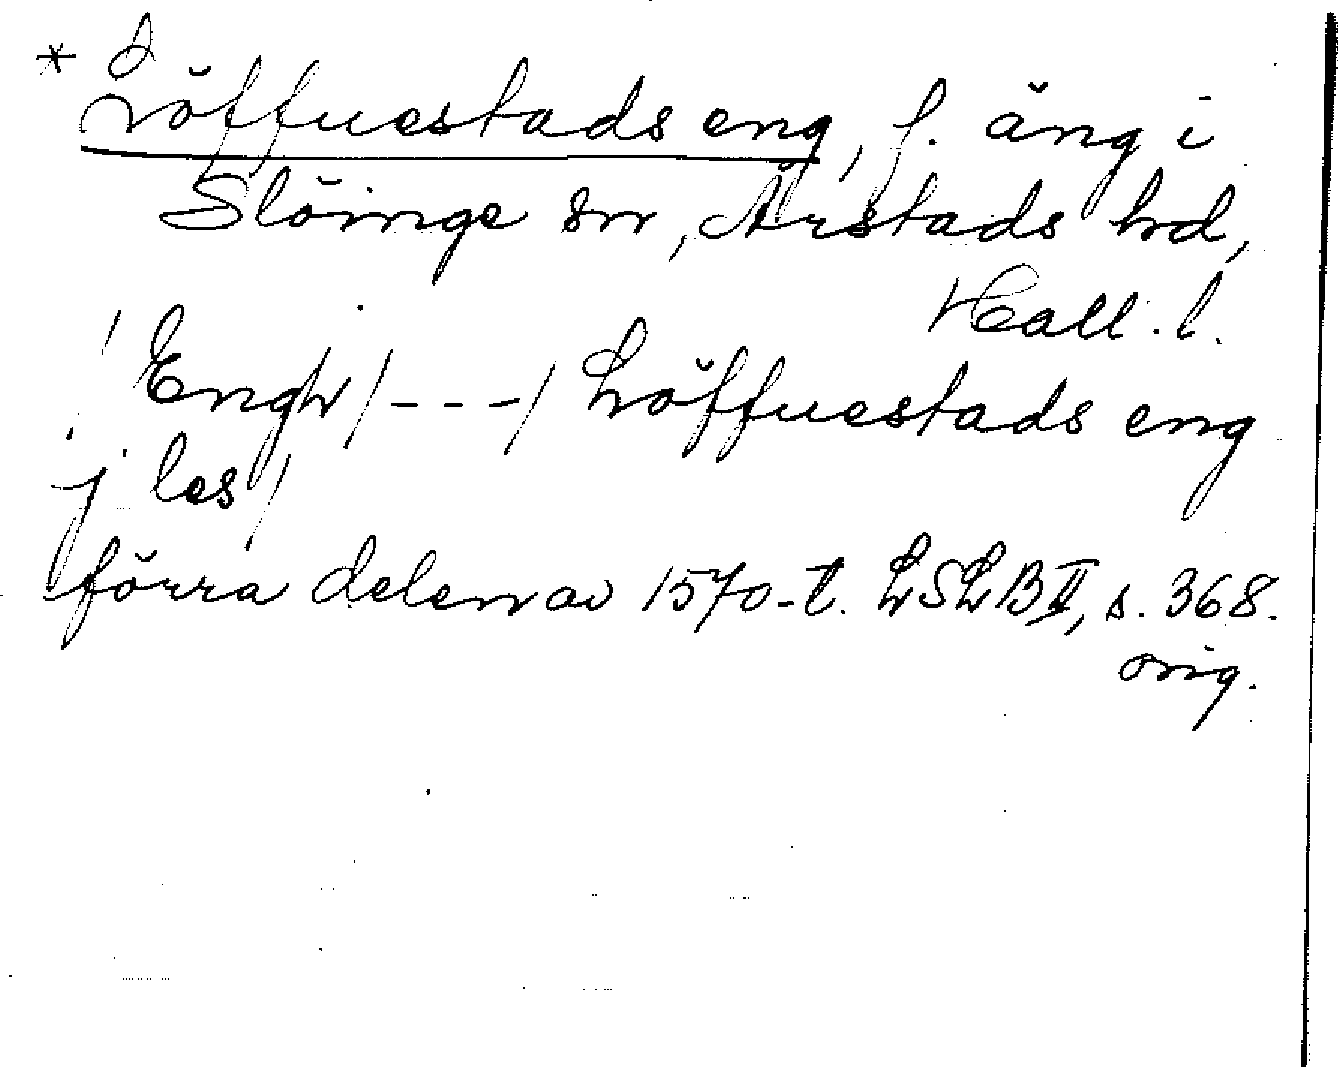 * Löffuestads eng, f. äng i
Slöinge sn, Årstads hd,
Hall. l.
/Engh/---/ Löffuestads eng
j les/
förra delen av 1570-t. LSLB II, s. 368.
orig.